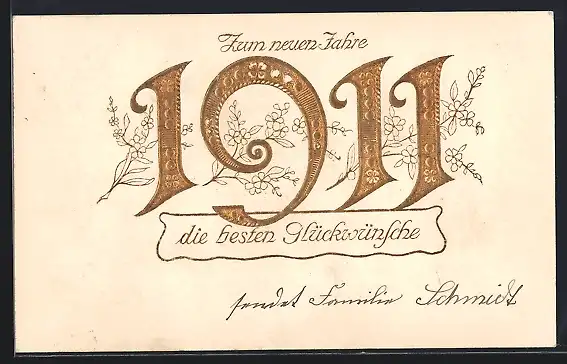 Zum neuen Jahre
1911
die besten Glückwünsche
sendet Familie Schmidt